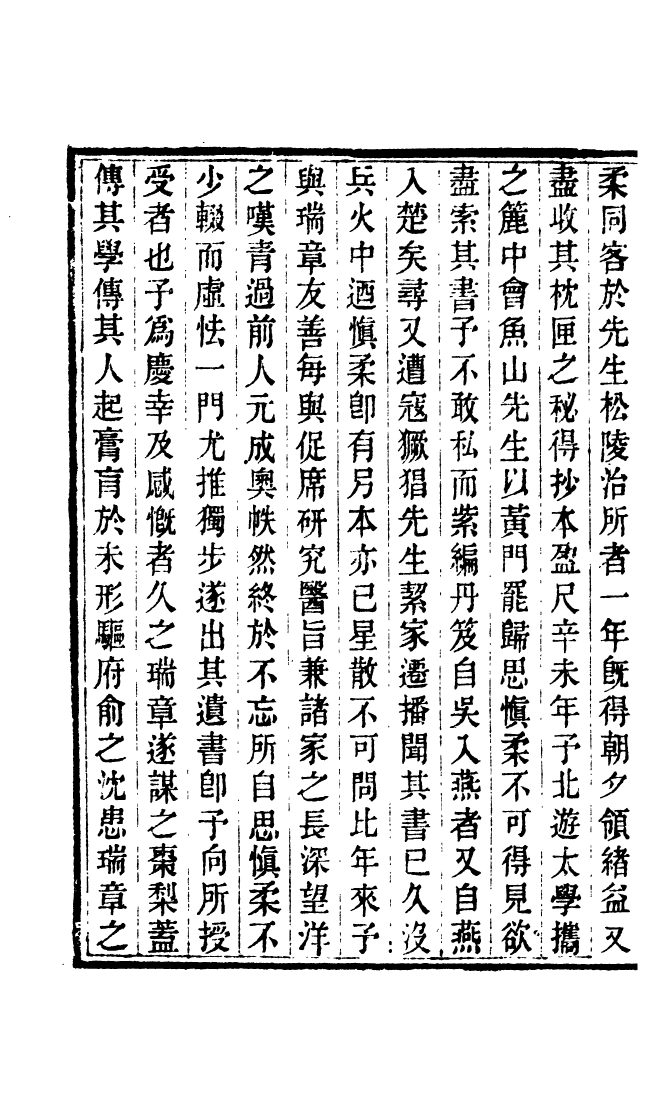 柔同客於先生松陵治所者一年旣得朝夕領緖益又
盡收其枕匣之秘得抄本盈尺辛未年予北遊太學攜
之簏中會魚山先生以黃門罷歸思愼柔不可得見欲
盡索其書予不敢私而紫編丹笈自吳入燕者又自燕
入楚矣尋又遭寇獗猖先生絜家遷播聞其書已久沒
兵火中迺愼柔卽有另本亦已星散不可問比年來予
與瑞章友善每與促席硏究醫旨兼諸家之長深望洋
之嘆靑過前人元成奧帙然終於不忘所自思愼柔不
少輟而虛怯一門尤推獨步遂出其遺書卽予向所授
受者也予爲慶幸及感慨者久之瑞章遂謀之棗梨蓋
傳其學傳其人起膏肓於未形驅府俞之沈患瑞章之